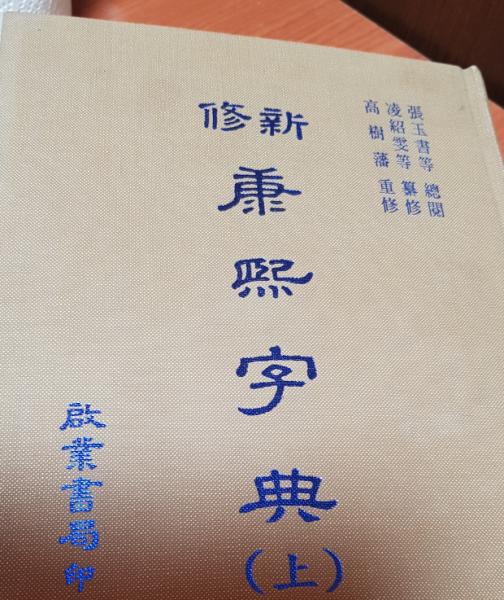 張玉書等 總閱
凌紹雯等 纂修
高樹藩 重修
新修
康熙字典
(上)
啟業書局印